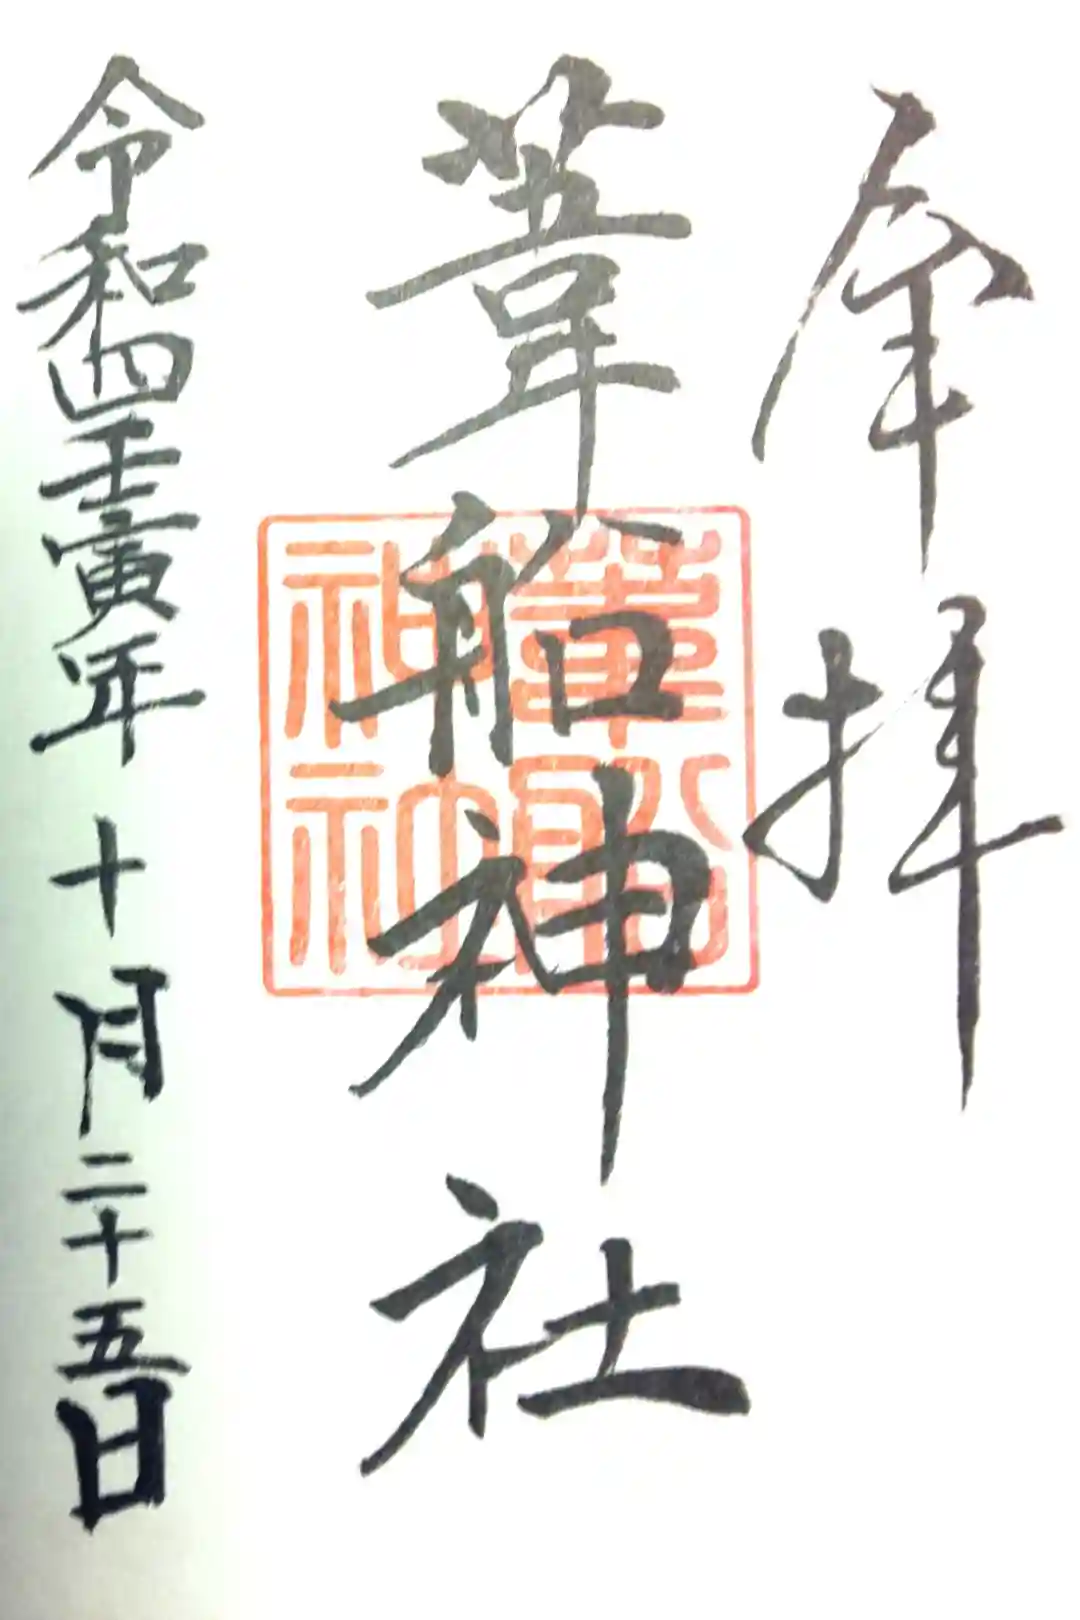 奉拝
葦船神社
葦船神社
令和四壬寅年 十月二十五日